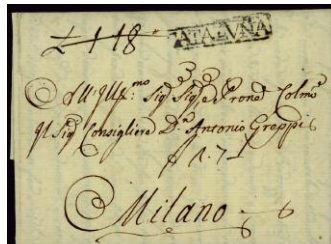 £ 1 18
CATALUÑA
All Ill.mo Sig.e Sig.e e Prone Colmo
Il Sig.e Consigliere D.n Antonio Greppi
A.7
Milano